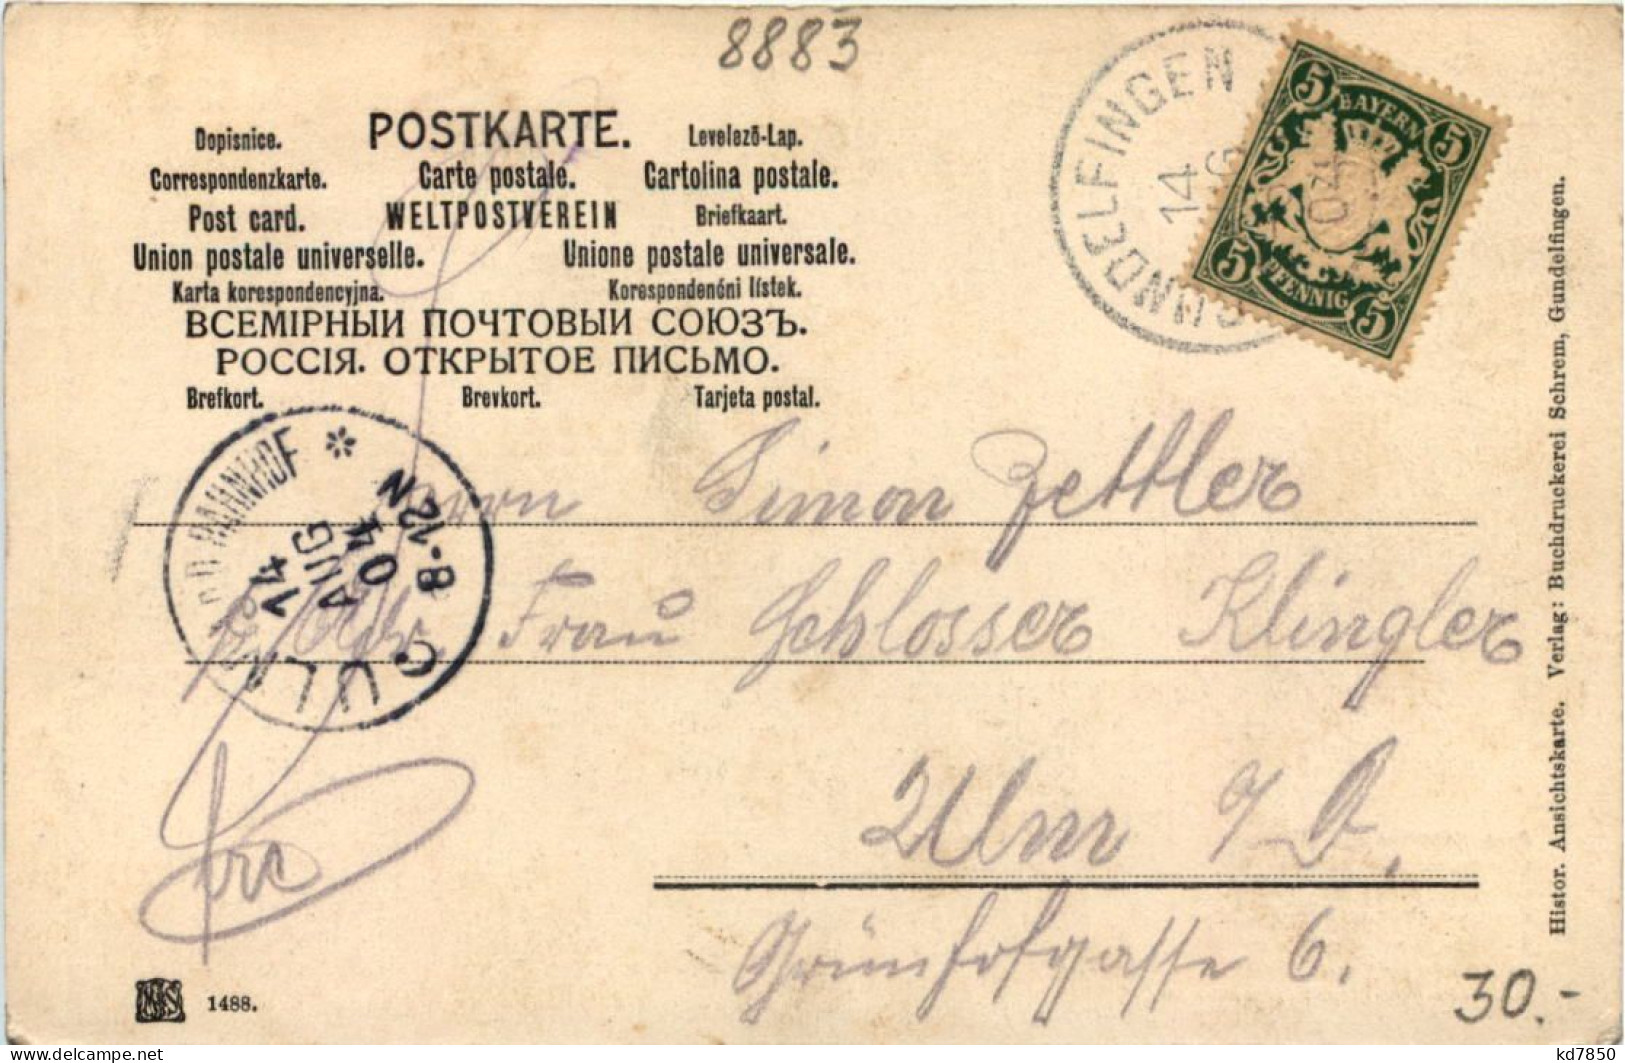 8883
POSTKARTE.
Dopisnice. Levelező-Lap.
Correspondenzkarte. Carte postale. Cartolina postale.
Post card. WELTPOSTVEREIN Briefkaart.
Union postale universelle. Unione postale universale.
Karta korespondencyjna. Korespondenčni lístek.
ВСЕМІРНЫИ ПОЧТОВЫИ СОЮЗЪ.
РОССІЯ. ОТКРЫТОЕ ПИСЬМО.
Brefkort. Brevkort. Tarjeta postal.
GUNDELFINGEN
14
5 BAYERN 5
5 PFENNIG 5
BAHNHOF
14
AUG
04
8-12N
ULM
Herrn Simon Zettler
Frau Schlosser Klingler
Ulm a/D.
Grünhofgasse 6.
1488.
30.-
Histor. Ansichtskarte. Verlag: Buchdruckerei Schrem, Gundelfingen.
www.delcampe.net
kd7850